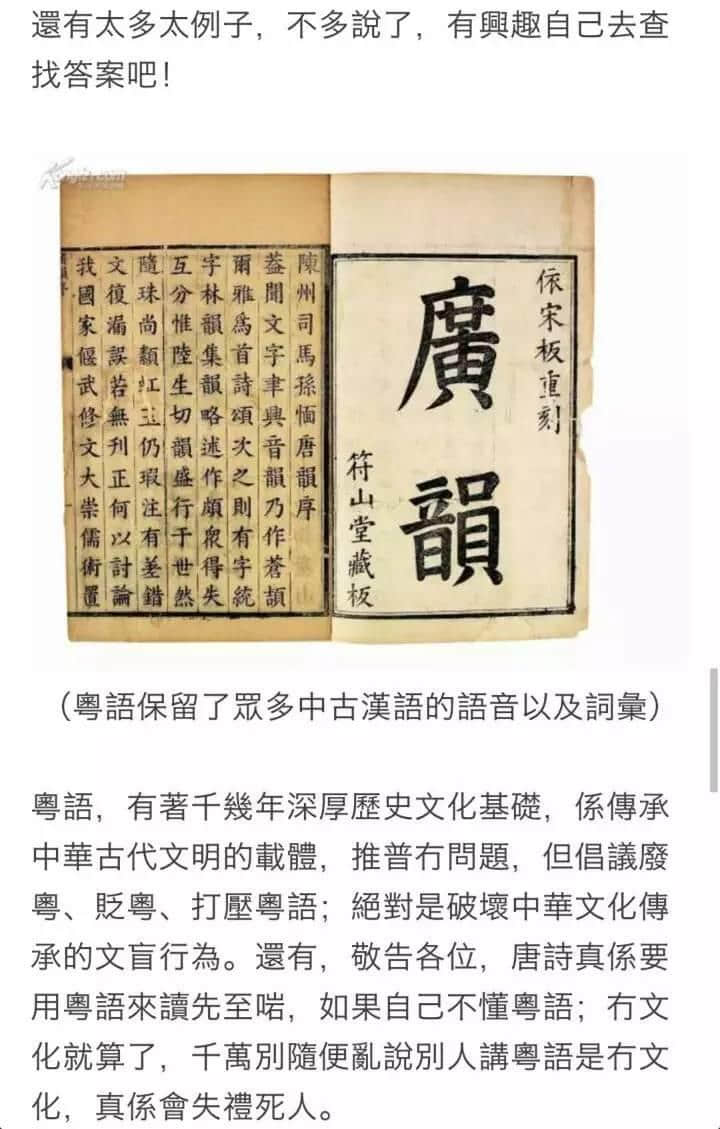 還有太多太例子，不多說了，有興趣自己去查
找答案吧！
依宋板重刻
廣韻
符山堂藏板
陳州司馬孫愐唐韻序
葢聞文字聿興音韻乃作蒼頡
爾雅爲首詩頌次之則有字統
字林韻集韻略述作頗衆得失
互分惟陸生切韻盛行于世然
隨珠尚纇虹玉仍瑕注有差錯
文復漏誤若無刊正何以討論
我國家偃武修文大崇儒術置
（粵語保留了眾多中古漢語的語音以及詞彙）
粵語，有著千幾年深厚歷史文化基礎，係傳承
中華古代文明的載體，推普冇問題，但倡議廢
粵、貶粵、打壓粵語；絕對是破壞中華文化傳
承的文盲行為。還有，敬告各位，唐詩真係要
用粵語來讀先至啱，如果自己不懂粵語；冇文
化就算了，千萬別隨便亂說別人講粵語是冇文
化，真係會失禮死人。